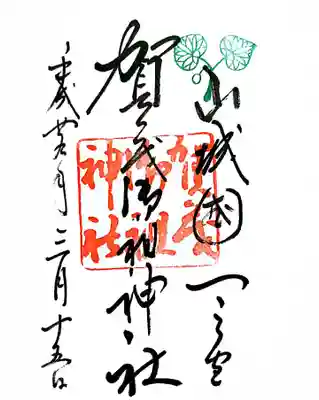 山城國一之宮
賀茂御祖神社
平成廿九年二月十五日
賀茂
御祖
神社